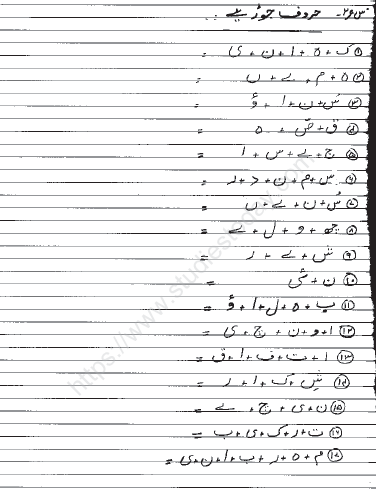 س۲۶۔ حروف جوڑیے :۔
① ک + ہ + ا + ن + ی =
② ہ + م + ے + ں =
③ سُ + ن + ا + ؤ =
④ ق + صّ + ہ =
⑤ ج + ے + س + ا =
⑥ س + م + ن + د + ر =
⑦ سُ + ن + ے + ں =
⑧ چھ + و + ل + ے =
⑨ ش + ے + ر =
⑩
⑪ ب + ہ + ا + ؤ =
⑫ ا + و + ن + چ + ی =
⑬ ا + ت + ف + ا + ق =
⑭ شِ + ک + ا + ر =
⑮ ن + ی + چ + ے =
⑯ ت + ر + ک + ی + ب =
⑰ م + ہ + ر + ب + ا + ن + ی =
https://www.studiestoday.com